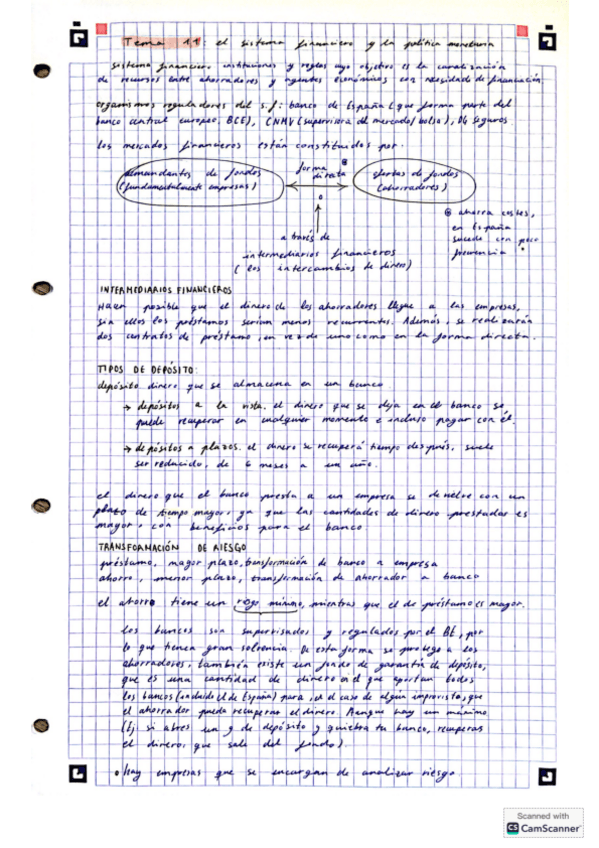 Tema 11: el sistema financiero y la política monetaria
sistema financiero. instituciones y reglas cuyo objetivo es la canalización
de recursos entre ahorradores y agentes económicos con necesidad de financiación.
organismos reguladores del s.f.: banco de España (que forma parte del
banco central europeo, BCE), CNMV (supervisora del mercado/bolsa), DG seguros.
los mercados financieros están constituidos por.
demandantes de fondos
(fundamentalmente empresas)
forma
directa
ofertas de fondos
(ahorradores)
o
ahorra costes,
en España
sucede con poca
frecuencia
a través de
intermediarios financieros
(los intercambios de dinero)
INTERMEDIARIOS FINANCIEROS
Hacen posible que el dinero de los ahorradores llegue a las empresas,
sin ellos los préstamos serían menos recurrentes. Además, se realizarán
dos contratos de préstamo, en vez de uno como en la forma directa.
TIPOS DE DEPÓSITO:
depósito dinero que se almacena en un banco
→ depósitos a la vista. el dinero que se deja en el banco se
puede recuperar en cualquier momento e incluso pagar con él.
→ depósitos a plazos. el dinero se recuperá tiempo después, suele
ser reducido, de 6 meses a un año.
el dinero que el banco presta a un empresa se devuelve con un
plazo de tiempo mayor, ya que las cantidades de dinero prestadas es
mayor, con beneficios para el banco
TRANSFORMACIÓN DE RIESGO
préstamo, mayor plazo, transformación de banco a empresa
ahorro, menor plazo, transformación de ahorrador a banco
el ahorro tiene un riesgo mínimo, mientras que el de préstamo es mayor.
los bancos son supervisados y regulados por el BE, por
lo que tienen gran solvencia. De esta forma se protege a los
ahorradores, también existe un fondo de garantía de depósito,
que es una cantidad de dinero en el que aportan todos
los bancos (incluido el de España) para, en el caso de algún imprevisto, que
el ahorrador pueda recuperar el dinero. Aunque hay un máximo
(Ej. si abres un y de depósito y quiebra tu banco, recuperas
el dinero, que sale del fondo).
o hay empresas que se encargan de analizar riesgo
Scanned with
CS CamScanner